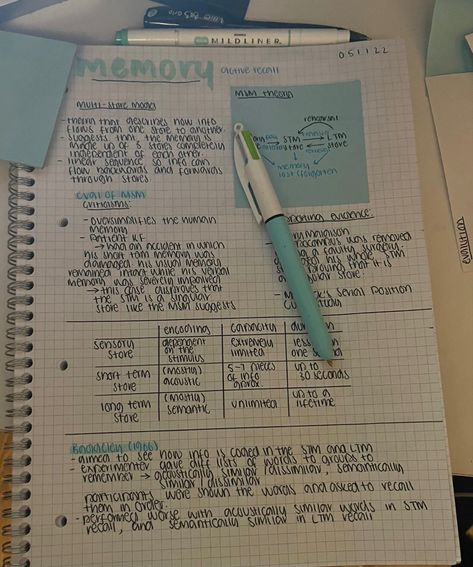 MILDLINER
051122
memory
active recall
multi-store model
- theory that describes how info
flows from one store to another
- suggests that the memory is
made up of 3 stores completely
independent of each other
- linear sequence so info can
flow backwards and forwards
through stores
MSM theory
rehearsal
STM LTM
store store
memory
lost/forgotten
eval of MSM
criticisms:
- oversimplifies the human
memory
- Patient KF
→ had an incident in which
his short term memory was
damaged. his visual memory
remained intact while his verbal
memory was severely impaired
→ this case disproves that
the STM is a singular
store like the MSM suggests
evidence:
was removed
faulty surgery.
his whole STM
that it is
store
Serial Position
encoding capacity
sensory store dependent on the stimulus extremely limited one second
short term store (mostly) acoustic 5-7 pieces of info approx. up to 30 seconds
long term store (mostly) semantic unlimited up to a lifetime
evaluation
Baddeley (1966)
- aimed to see how info is coded in the STM and LTM
- experimenter gave diff lists of words to groups to
remember → acoustically similar/dissimilar, semantically
similar/dissimilar
participants were shown the words and asked to recall
them in order.
- performed worse with acoustically similar words in STM
recall, and semantically similar in LTM recall